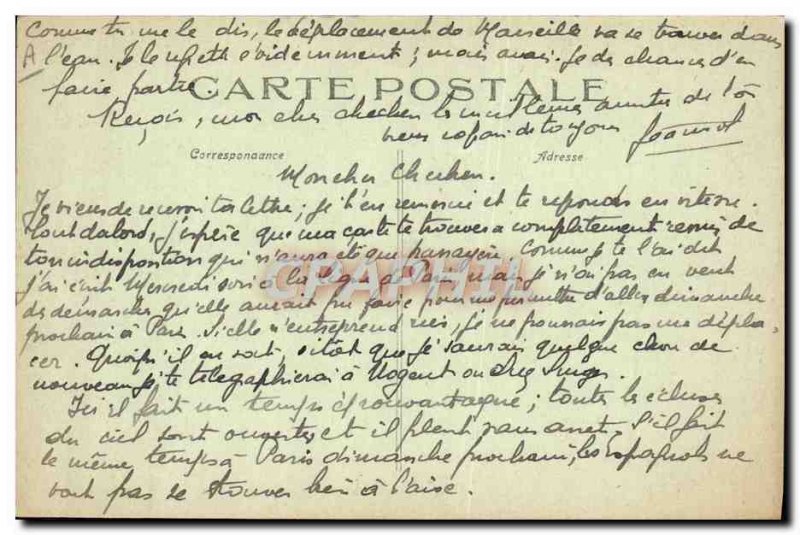 Comme tu me le dis, le déplacement de Marseille va se trouver dans
A l'eau. Je le regrette évidemment ; mais avais-je des chances d'en
faire partie.
CARTE POSTALE
Reçois, mon cher chechen les meilleures amitiés de ton
vieux copain de toujours
Correspondance
Adresse
Mon cher Chechen.
Je viens de recevoir ta lettre ; je t'en remercie et te réponds en vitesse.
Tout d'abord, j'espère que ma carte te trouvera complètement remis de
ton indisposition qui n'aura été que passagère. Comme je te l'ai dit
j'ai écrit Mercredi soir à la de Paris mais je n'ai pas eu vent
des démarches qu'elle aurait pu faire pour me permettre d'aller dimanche
prochain à Paris. Si elle n'entreprend rien, je ne pourrais pas me dépla-
cer. Quoiqu'il en soit, sitôt que je saurai quelque chose de
nouveau je te télégraphierai à Nogent ou chez
Ici il fait un temps épouvantable ; toutes les écluses
du ciel sont ouvertes et il pleut sans arrêt. S'il fait
le même temps à Paris dimanche prochain, les Espagnols ne
vont pas se trouver bien à l'aise.